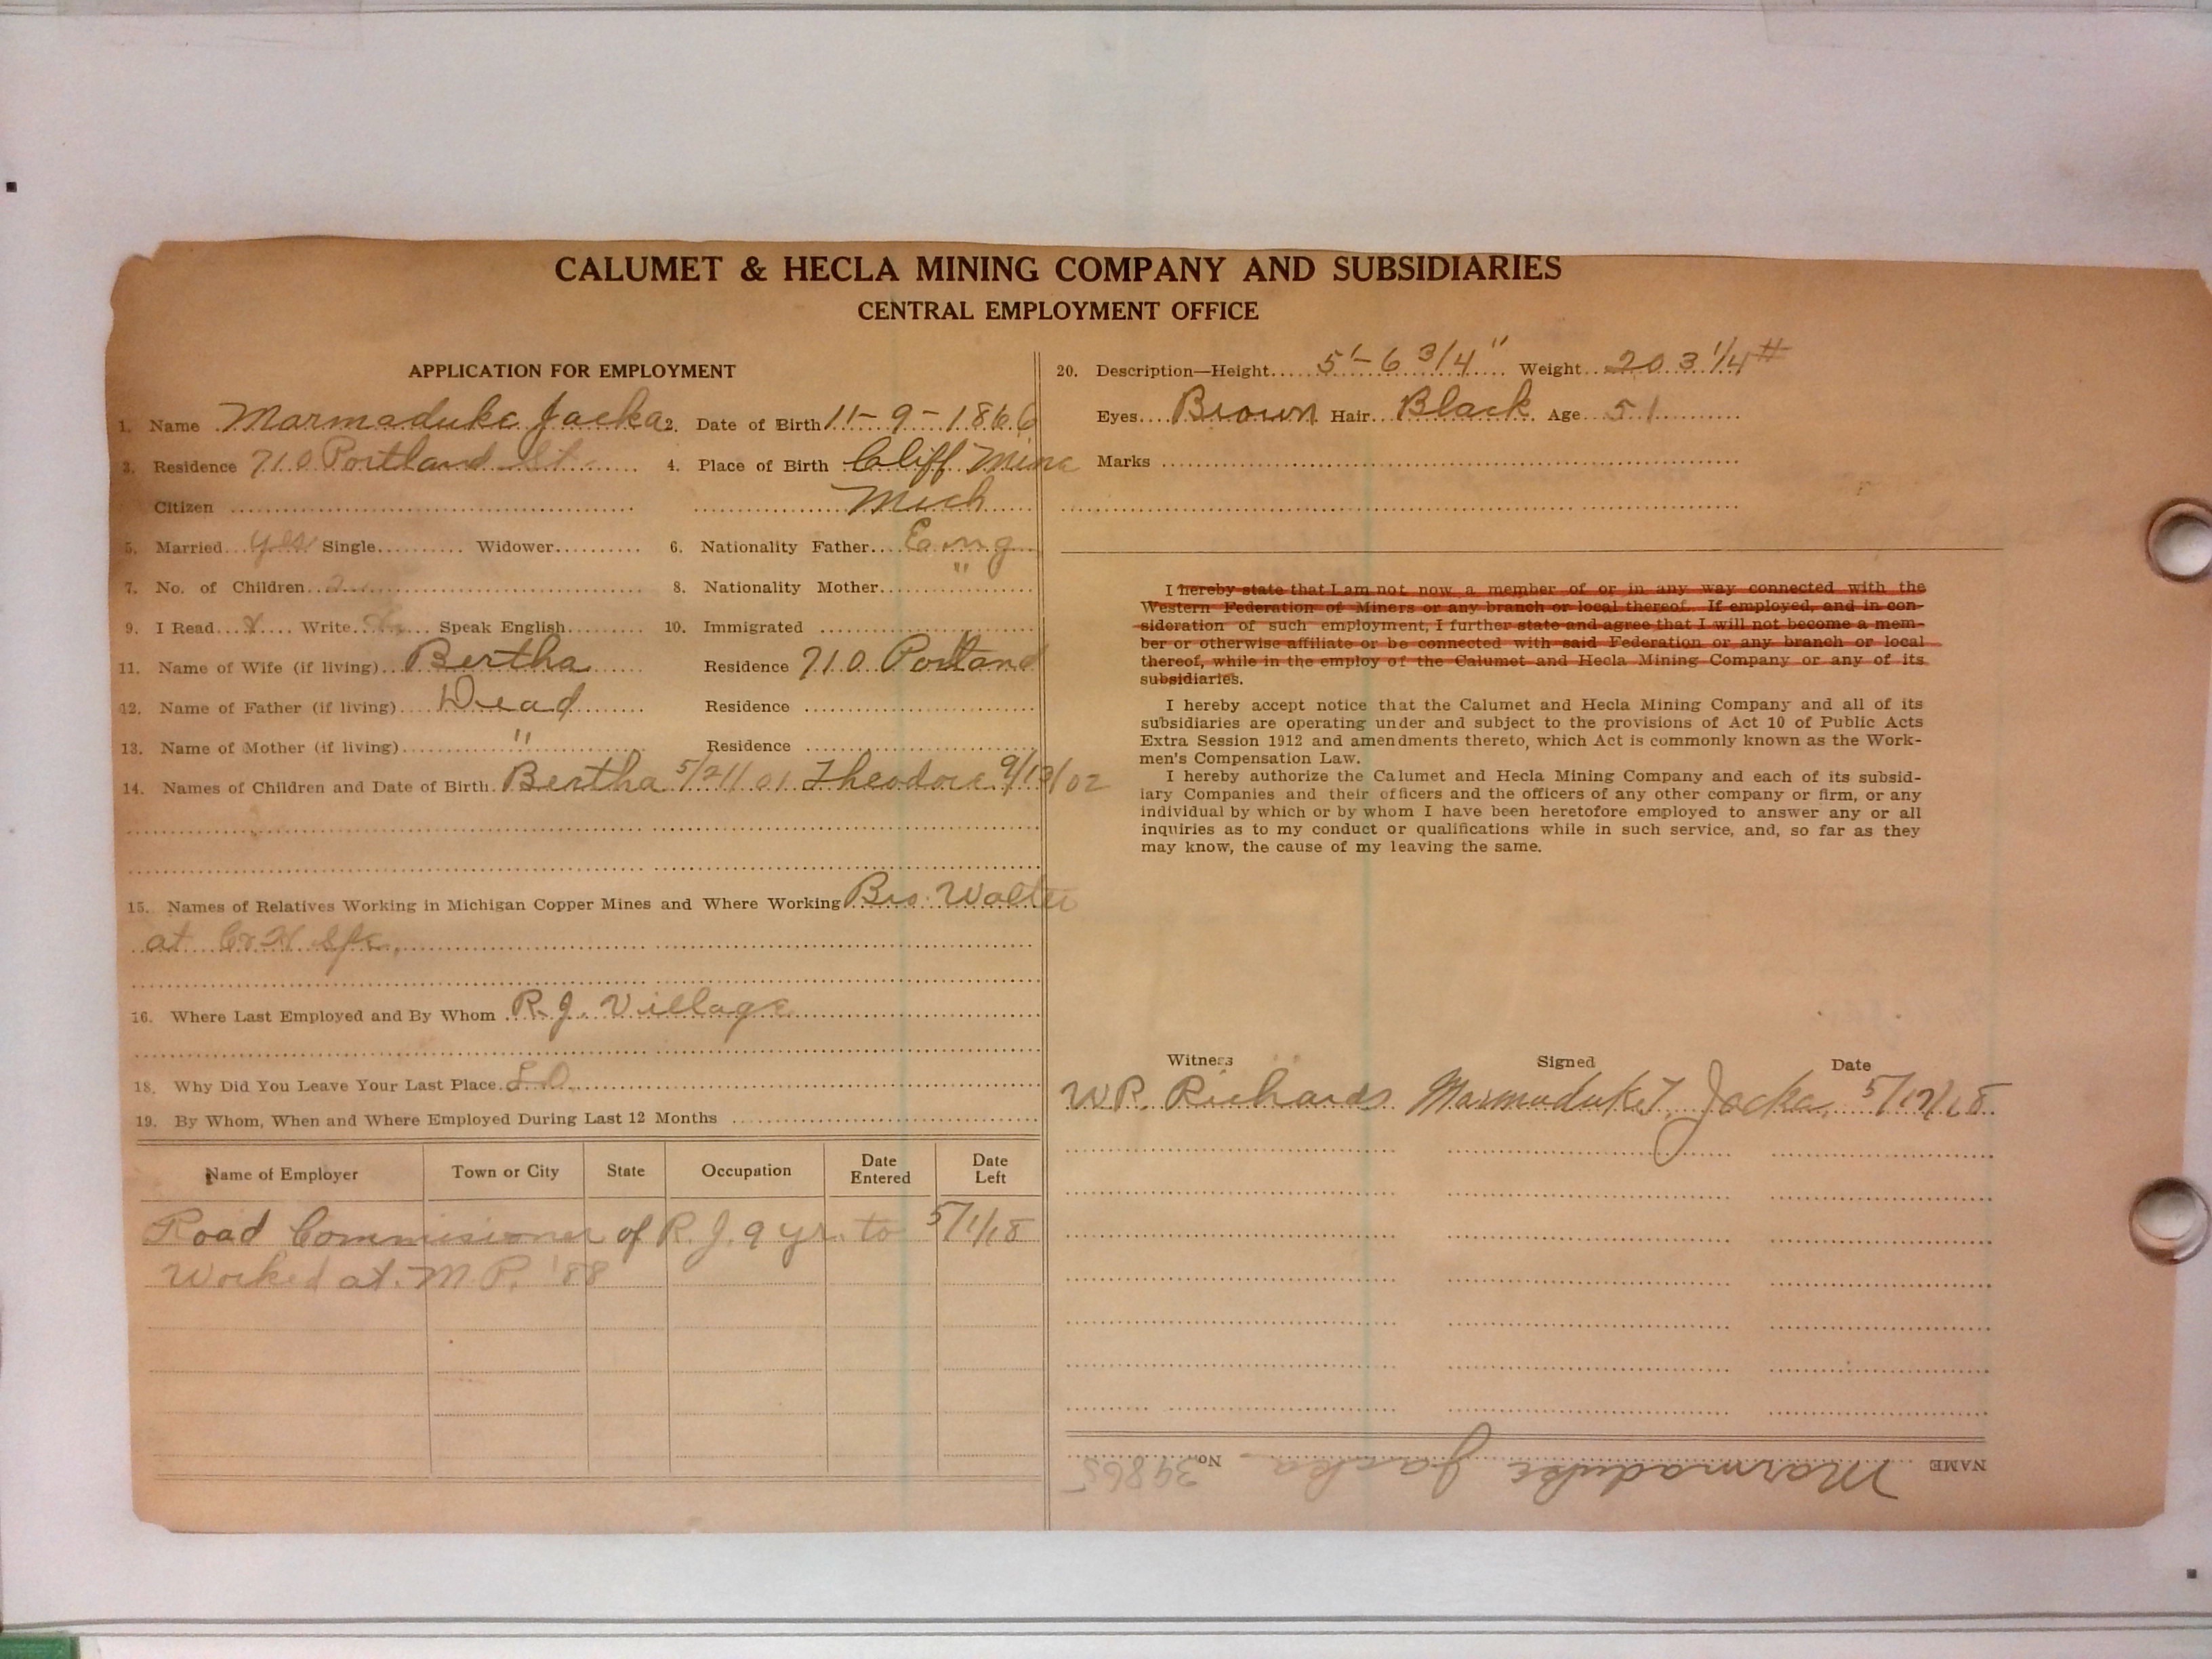 CALUMET & HECLA MINING COMPANY AND SUBSIDIARIES
CENTRAL EMPLOYMENT OFFICE
APPLICATION FOR EMPLOYMENT
1. Name Marmaduke Jacka 2. Date of Birth 11-9-1866
3. Residence 710 Portland St. 4. Place of Birth Cliff Mine
Citizen Mich
5. Married yes Single Widower 6. Nationality Father Eng
7. No. of Children 2 8. Nationality Mother "
9. I Read X Write Speak English 10. Immigrated
11. Name of Wife (if living) Bertha Residence 710 Portland
12. Name of Father (if living) Dead Residence
13. Name of Mother (if living) " Residence
14. Names of Children and Date of Birth Bertha 01 Theodore 02
15. Names of Relatives Working in Michigan Copper Mines and Where Working Bro. Walter
at C&H
16. Where Last Employed and By Whom R.J. Village
18. Why Did You Leave Your Last Place
19. By Whom, When and Where Employed During Last 12 Months
Name of Employer Town or City State Occupation Date Entered Date Left
Road Commissioner of R.J. 9 yr. to 5/1/18
Worked at M.P. '88
20. Description—Height 5'-6 3/4" Weight 203 1/4 #
Eyes Brown Hair Black Age 51
Marks
I hereby state that I am not now a member of or in any way connected with the
Western Federation of Miners or any branch or local thereof. If employed, and in con-
sideration of such employment, I further state and agree that I will not become a mem-
ber or otherwise affiliate or be connected with said Federation or any branch or local
thereof, while in the employ of the Calumet and Hecla Mining Company or any of its
subsidiaries.
I hereby accept notice that the Calumet and Hecla Mining Company and all of its
subsidiaries are operating under and subject to the provisions of Act 10 of Public Acts
Extra Session 1912 and amendments thereto, which Act is commonly known as the Work-
men's Compensation Law.
I hereby authorize the Calumet and Hecla Mining Company and each of its subsid-
iary Companies and their officers and the officers of any other company or firm, or any
individual by which or by whom I have been heretofore employed to answer any or all
inquiries as to my conduct or qualifications while in such service, and, so far as they
may know, the cause of my leaving the same.
Witness Signed Date
W.P. Richards Marmaduke J. Jacka 5/17/18
NAME Marmaduke Jacka No. 39865